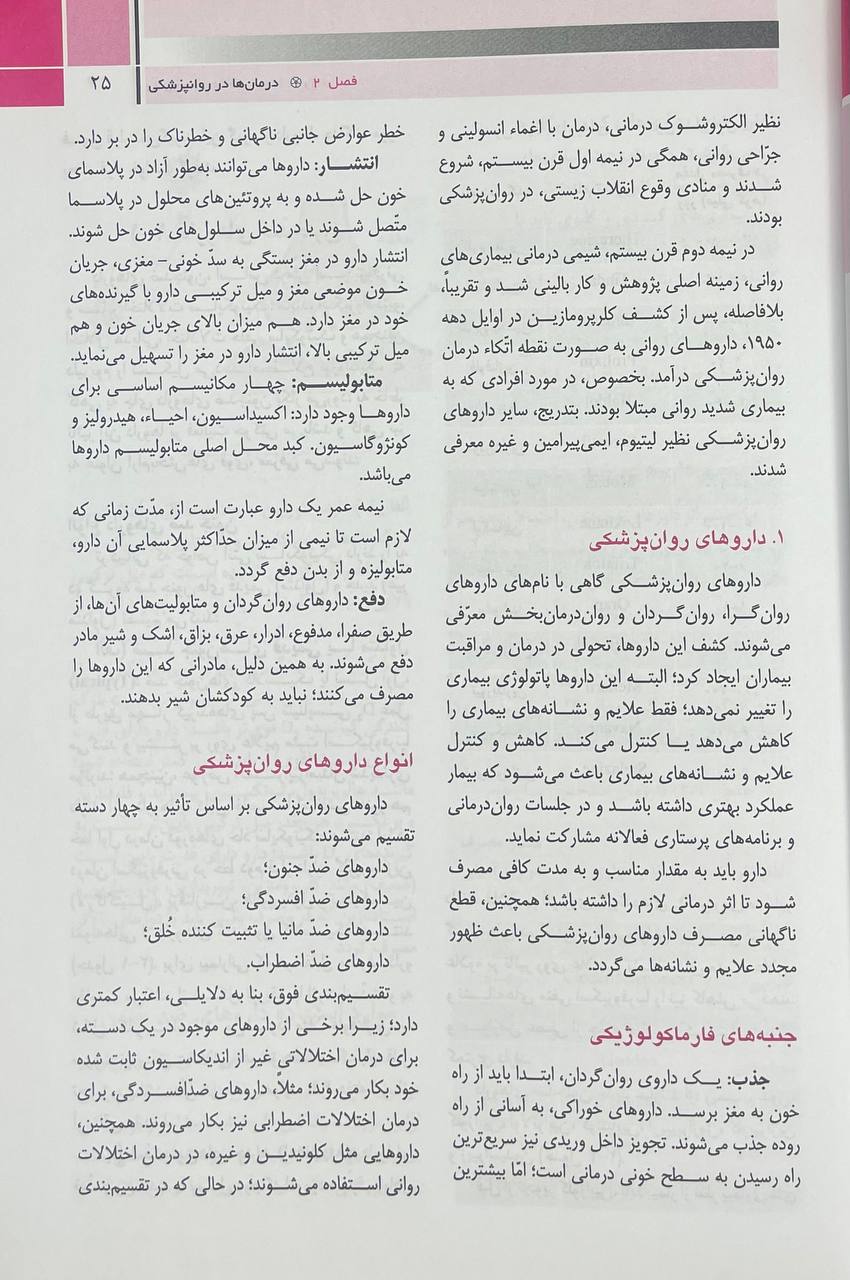 فصل ۲ درمان‌ها در روانپزشکی
۲۵
نظیر الکتروشوک درمانی، درمان با اغماء انسولینی و
جرّاحی روانی، همگی در نیمه اول قرن بیستم، شروع
شدند و منادی وقوع انقلاب زیستی، در روان‌پزشکی
بودند.
در نیمه دوم قرن بیستم، شیمی درمانی بیماری‌های
روانی، زمینه اصلی پژوهش و کار بالینی شد و تقریباً،
بلافاصله، پس از کشف کلرپرومازین در اوایل دهه
۱۹۵۰، داروهای روانی به صورت نقطه اتّکاء درمان
روان‌پزشکی درآمد. بخصوص، در مورد افرادی که به
بیماری شدید روانی مبتلا بودند. بتدریج، سایر داروهای
روان‌پزشکی نظیر لیتیوم، ایمی‌پیرامین و غیره معرفی
شدند.
۱. داروهای روان‌پزشکی
داروهای روان‌پزشکی گاهی با نام‌های داروهای
روان‌گرا، روان‌گردان و روان‌درمان‌بخش معرّفی
می‌شوند. کشف این داروها، تحولی در درمان و مراقبت
بیماران ایجاد کرد؛ البته این داروها پاتولوژی بیماری
را تغییر نمی‌دهد؛ فقط علایم و نشانه‌های بیماری را
کاهش می‌دهد یا کنترل می‌کند. کاهش و کنترل
علایم و نشانه‌های بیماری باعث می‌شود که بیمار
عملکرد بهتری داشته باشد و در جلسات روان‌درمانی
و برنامه‌های پرستاری فعالانه مشارکت نماید.
دارو باید به مقدار مناسب و به مدت کافی مصرف
شود تا اثر درمانی لازم را داشته باشد؛ همچنین، قطع
ناگهانی مصرف داروهای روان‌پزشکی باعث ظهور
مجدد علایم و نشانه‌ها می‌گردد.
جنبه‌های فارماکولوژیکی
جذب: یک داروی روان‌گردان، ابتدا باید از راه
خون به مغز برسد. داروهای خوراکی، به آسانی از راه
روده جذب می‌شوند. تجویز داخل وریدی نیز سریع‌ترین
راه رسیدن به سطح خونی درمانی است؛ امّا بیشترین
خطر عوارض جانبی ناگهانی و خطرناک را در بر دارد.
انتشار: داروها می‌توانند به‌طور آزاد در پلاسمای
خون حل شده و به پروتئین‌های محلول در پلاسما
متّصل شوند یا در داخل سلول‌های خون حل شوند.
انتشار دارو در مغز بستگی به سدّ خونی- مغزی، جریان
خون موضعی مغز و میل ترکیبی دارو با گیرنده‌های
خود در مغز دارد. هم میزان بالای جریان خون و هم
میل ترکیبی بالا، انتشار دارو در مغز را تسهیل می‌نماید.
متابولیسم: چهار مکانیسم اساسی برای
داروها وجود دارد: اکسیداسیون، احیاء، هیدرولیز و
کونژوگاسیون. کبد محل اصلی متابولیسم داروها
می‌باشد.
نیمه عمر یک دارو عبارت است از، مدّت زمانی که
لازم است تا نیمی از میزان حدّاکثر پلاسمایی آن دارو،
متابولیزه و از بدن دفع گردد.
دفع: داروهای روان‌گردان و متابولیت‌های آن‌ها، از
طریق صفرا، مدفوع، ادرار، عرق، بزاق، اشک و شیر مادر
دفع می‌شوند. به همین دلیل، مادرانی که این داروها را
مصرف می‌کنند؛ نباید به کودکشان شیر بدهند.
انواع داروهای روان‌پزشکی
داروهای روان‌پزشکی بر اساس تأثیر به چهار دسته
تقسیم می‌شوند:
داروهای ضدّ جنون؛
داروهای ضدّ افسردگی؛
داروهای ضدّ مانیا یا تثبیت کننده خُلق؛
داروهای ضدّ اضطراب.
تقسیم‌بندی فوق، بنا به دلایلی، اعتبار کمتری
دارد؛ زیرا برخی از داروهای موجود در یک دسته،
برای درمان اختلالاتی غیر از اندیکاسیون ثابت شده
خود بکار می‌روند؛ مثلاً، داروهای ضدّافسردگی، برای
درمان اختلالات اضطرابی نیز بکار می‌روند. همچنین،
داروهایی مثل کلونیدین و غیره، در درمان اختلالات
روانی استفاده می‌شوند؛ در حالی که در تقسیم‌بندی